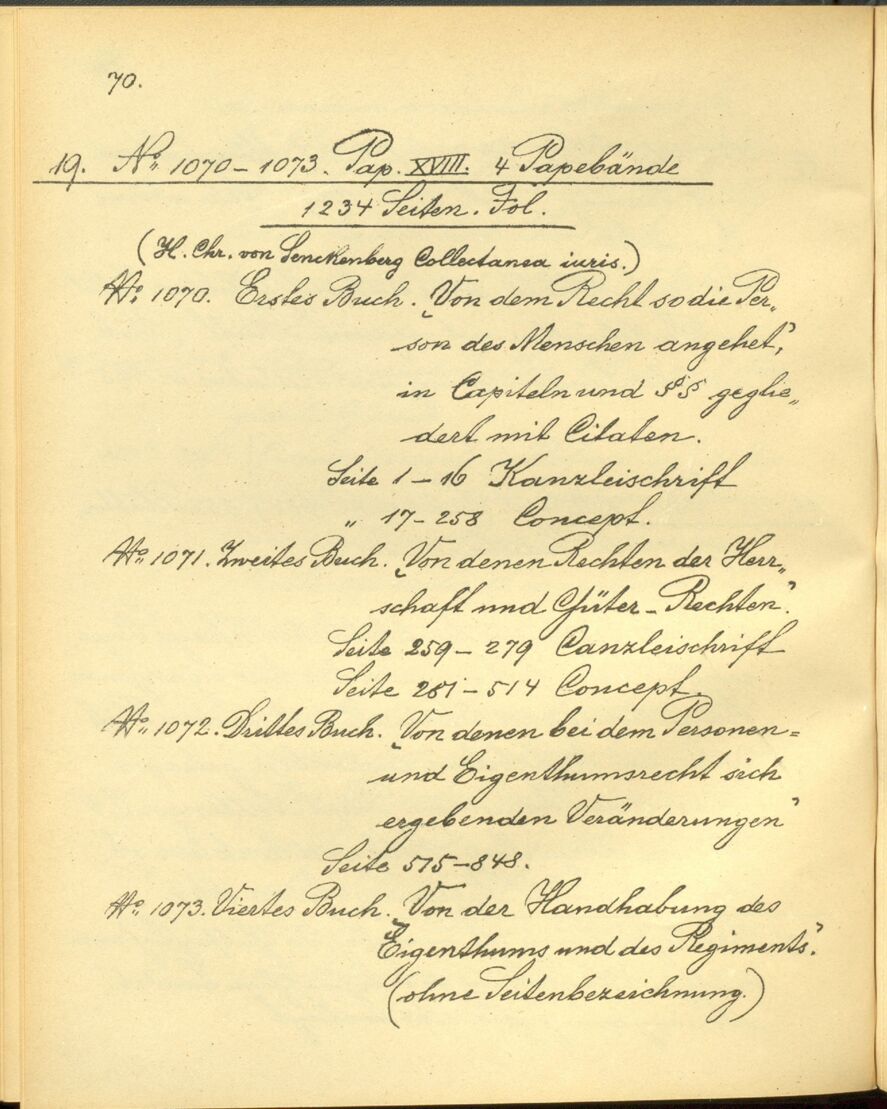 70.
19. No. 1070 – 1073. Pap. XVIII. 4 Papebände
1234 Seiten. Fol.
(H. Chr. von Senckenberg Collectanea iuris.)
No. 1070. Erstes Buch. „Von dem Recht so die Per„
son des Menschen angehet“,
in Capiteln und §§ geglie„
dert mit Citaten.
Seite 1 – 16 Kanzleischrift
„ 17 – 258 Concept.
No. 1071. Zweites Buch. „Von denen Rechten der Herr„
schaft und Güter – Rechten“.
Seite 259 – 279 Canzleischrift
Seite 281 – 514 Concept.
No. 1072. Drittes Buch. „Von denen bei dem Personen=
und Eigenthumsrecht sich
ergebenden Veränderungen“
Seite 515 – 848.
No. 1073. Viertes Buch. „Von der Handhabung des
Eigenthums und des Regiments“.
(ohne Seitenbezeichnung.)